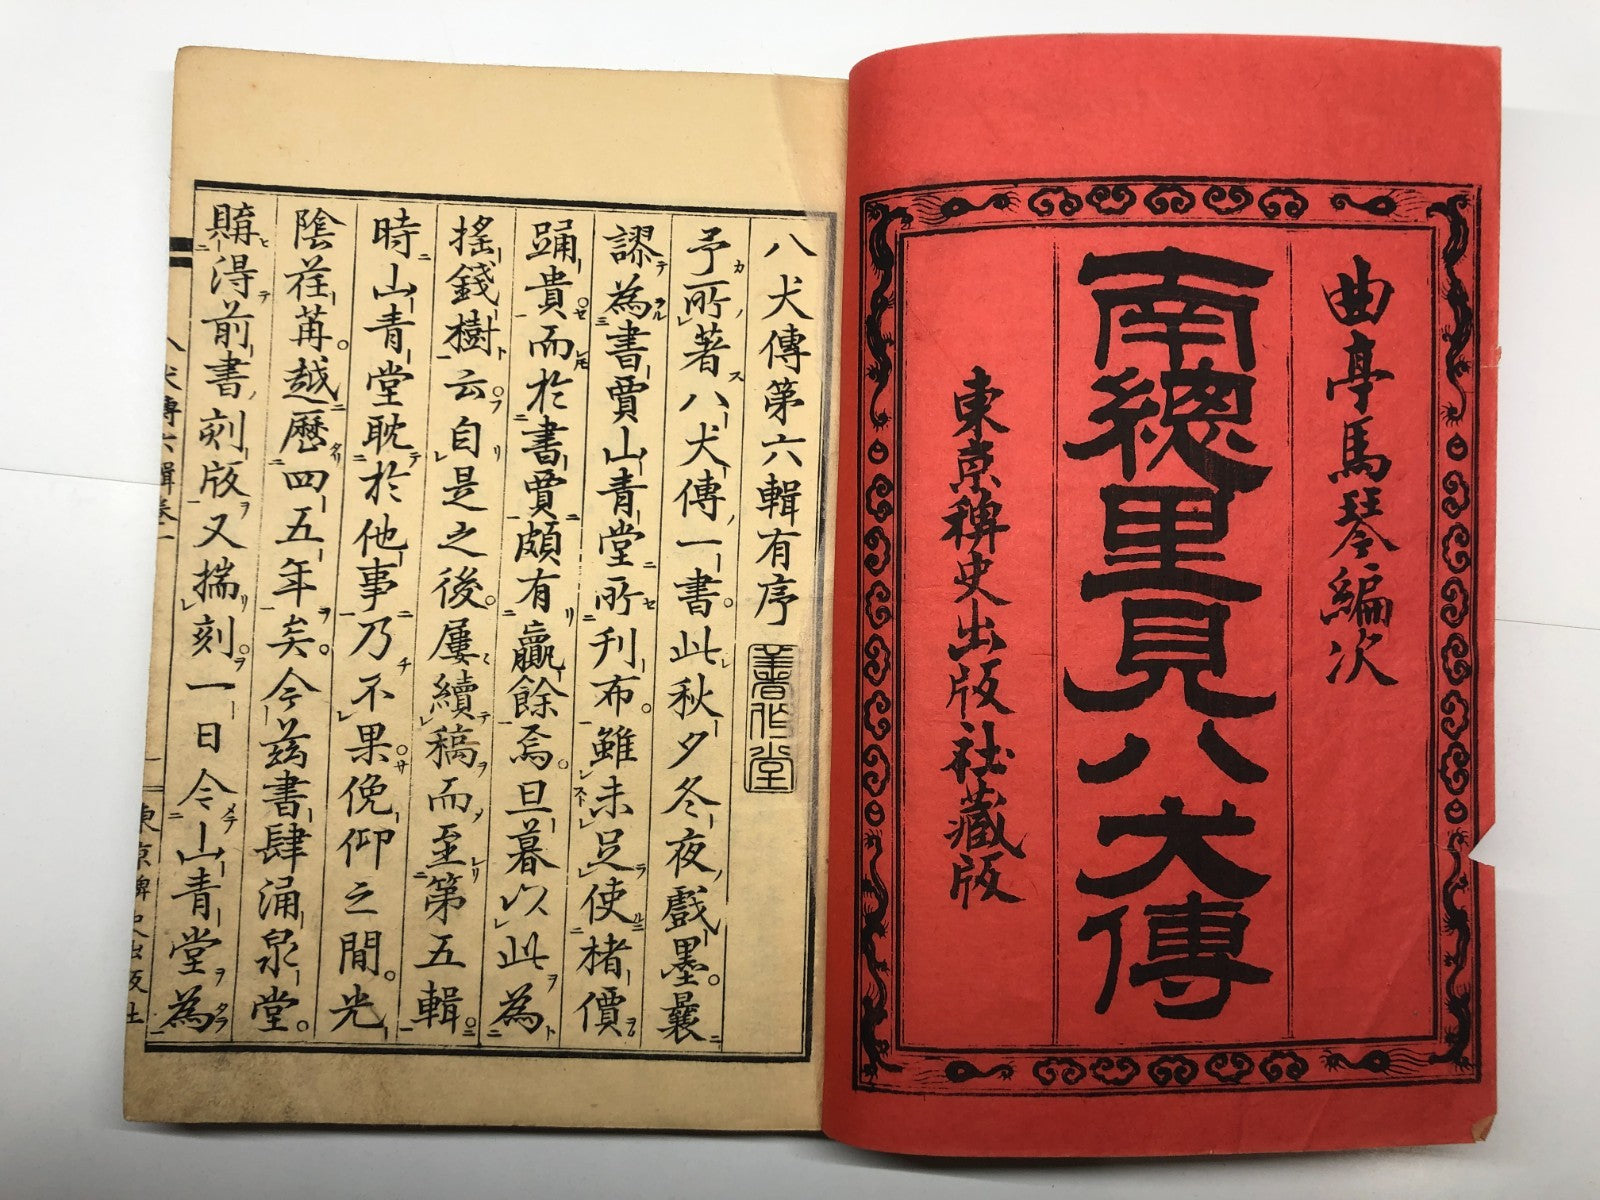 曲亭馬琴編次
南總里見八犬傳
東京稗史出版社藏版
八犬傳第六輯有序
著作堂
予所著八犬傳一書。此秋夕冬夜戲墨。曩
謬為書賈山青堂所刋布。雖未足使楮價
踊貴。而於書賈頗有贏餘焉。旦暮以此為
搖錢樹云。自是之後。屢續稿而至第五輯。
時山青堂耽於他事。乃不果。俛仰之間。光
陰荏苒。越歷四五年矣。今茲書肆涌泉堂。
購得前書刻版。又揣刻。一日令山青堂為
八犬傳六輯卷一
東京稗史出版社